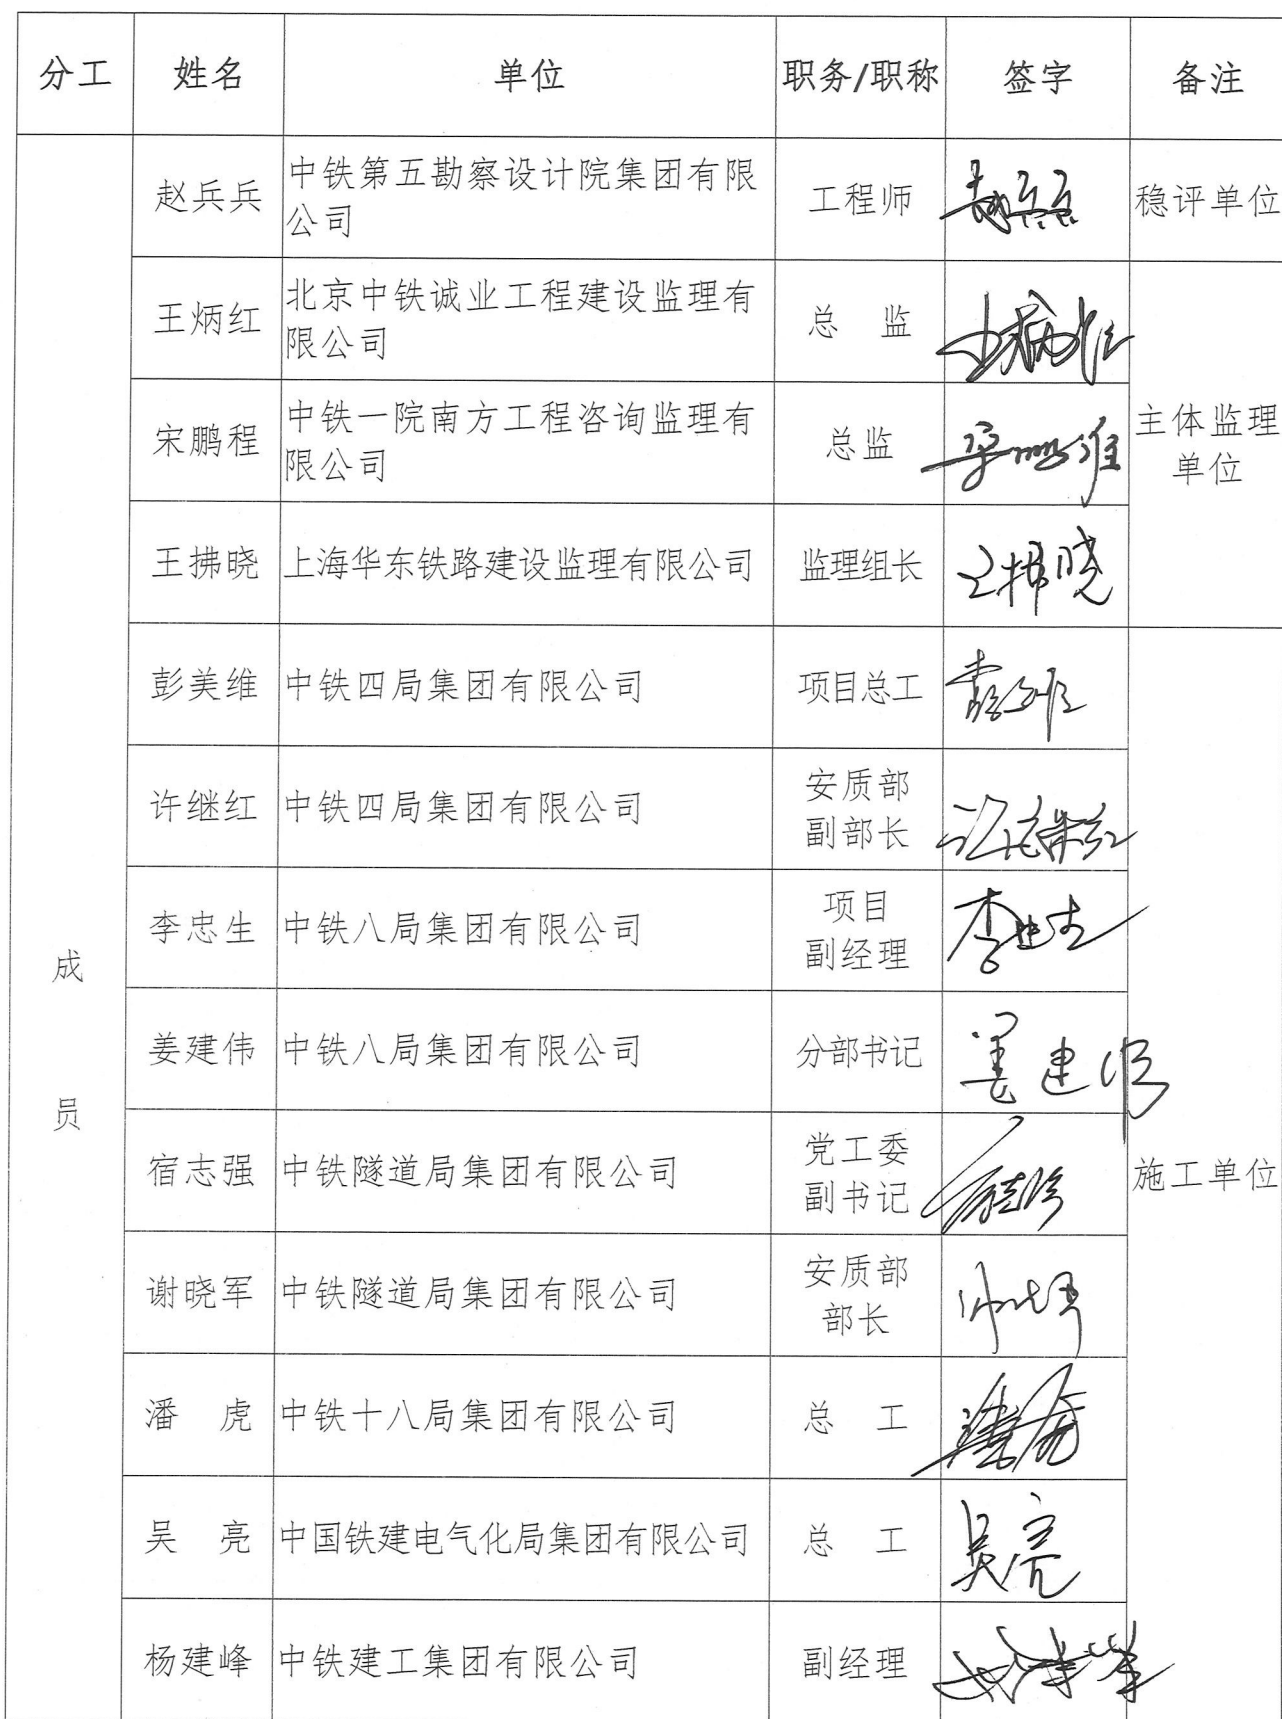 分工 姓名 单位 职务/职称 签字 备注
赵兵兵 中铁第五勘察设计院集团有限 工程师 赵兵兵 稳评单位
公司
王炳红 北京中铁诚业工程建设监理有 总 监 王炳红
限公司
宋鹏程 中铁一院南方工程咨询监理有 总监 宋鹏程 主体监理
限公司 单位
王拂晓 上海华东铁路建设监理有限公司 监理组长 王拂晓
彭美维 中铁四局集团有限公司 项目总工 彭美维
许继红 中铁四局集团有限公司 安质部 许继红
副部长
李忠生 中铁八局集团有限公司 项目 李忠生
副经理
成
姜建伟 中铁八局集团有限公司 分部书记 姜建伟
员
宿志强 中铁隧道局集团有限公司 党工委 宿志强 施工单位
副书记
谢晓军 中铁隧道局集团有限公司 安质部
部长
潘 虎 中铁十八局集团有限公司 总 工 潘虎
吴 亮 中国铁建电气化局集团有限公司 总 工 吴亮
杨建峰 中铁建工集团有限公司 副经理